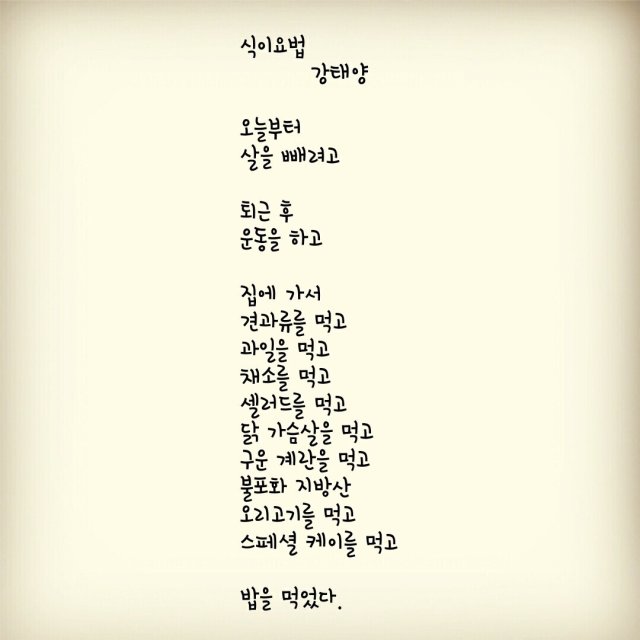 식이요법
강태양
오늘부터
살을 빼려고
퇴근 후
운동을 하고
집에 가서
견과류를 먹고
과일을 먹고
채소를 먹고
셀러드를 먹고
닭 가슴살을 먹고
구운 계란을 먹고
불포화 지방산
오리고기를 먹고
스페셜 케이를 먹고
밥을 먹었다.